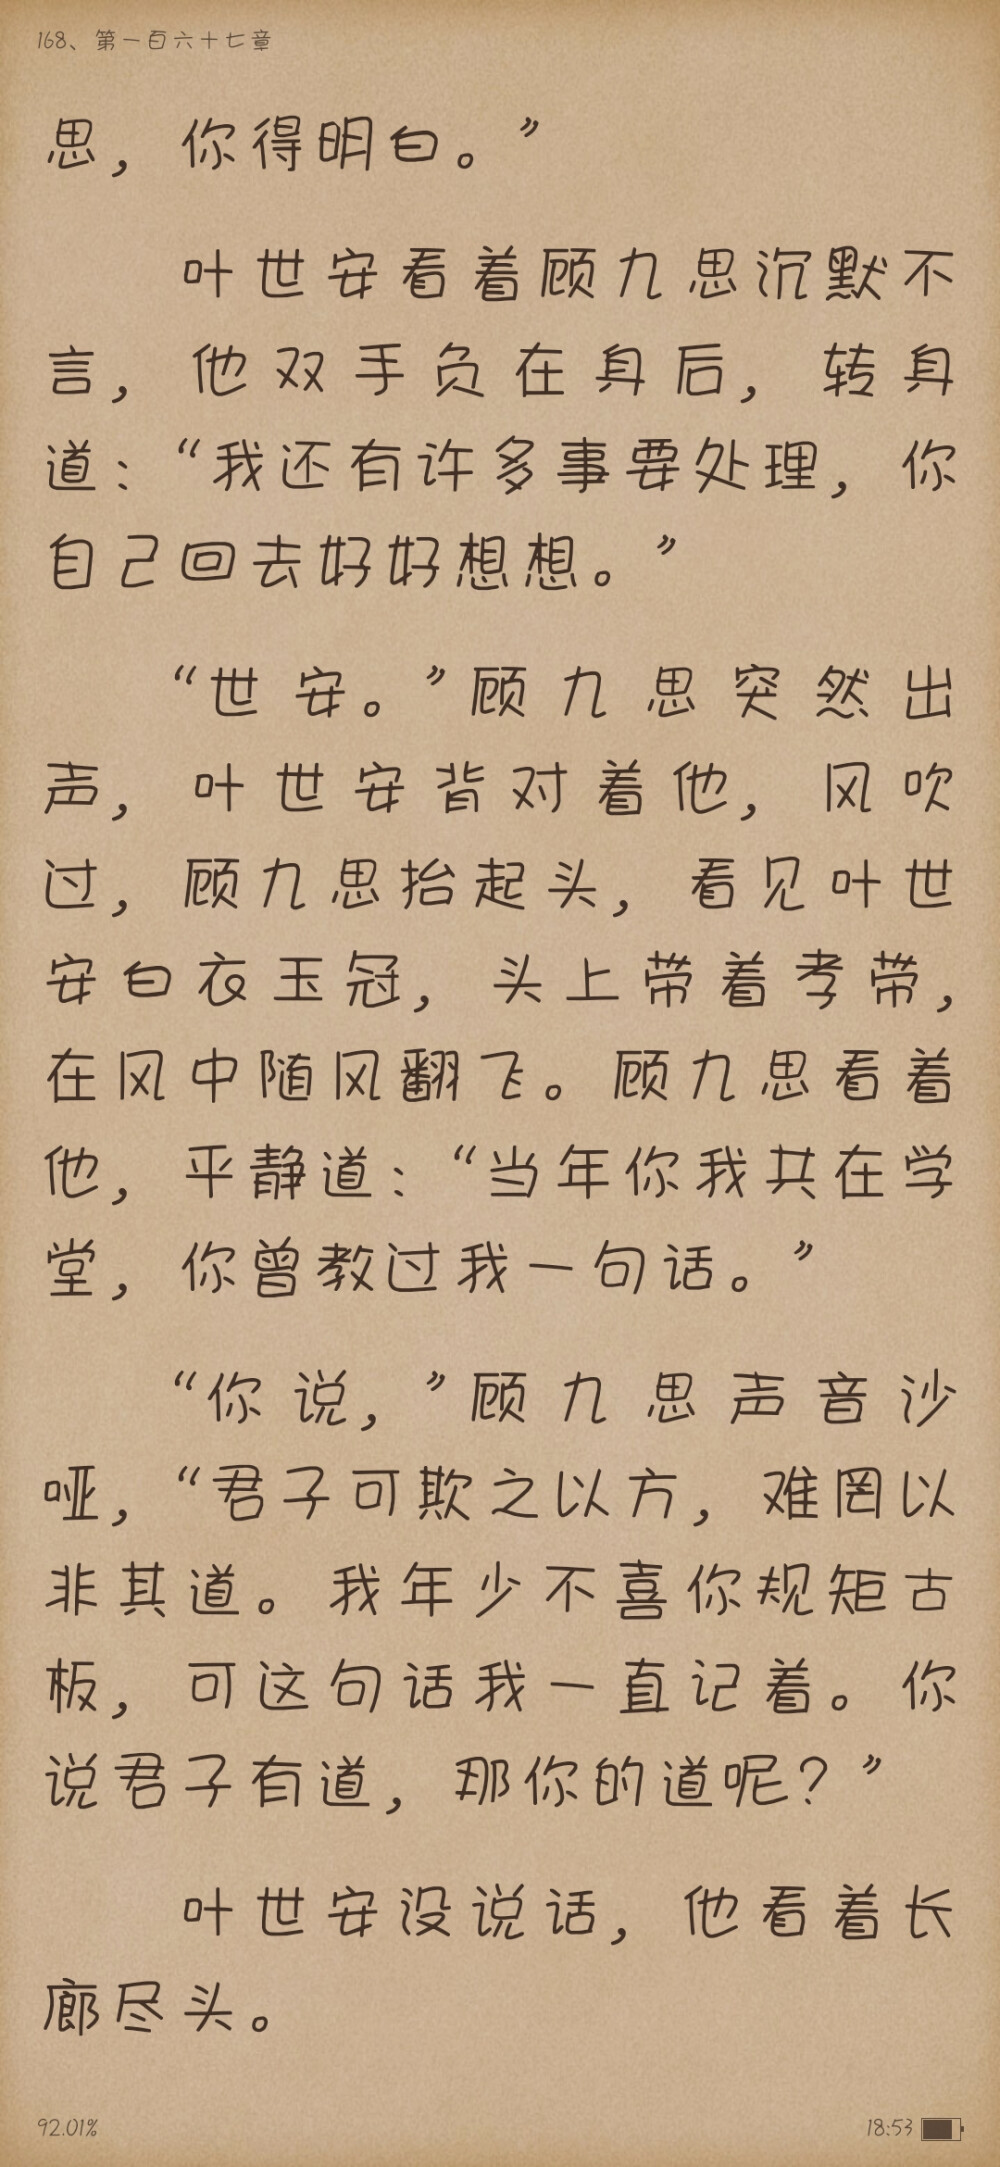 168、第一百六十七章
思，你得明白。”
叶世安看着顾九思沉默不
言，他双手负在身后，转身
道：“我还有许多事要处理，你
自己回去好好想想。”
“世安。”顾九思突然出
声，叶世安背对着他，风吹
过，顾九思抬起头，看见叶世
安白衣玉冠，头上带着孝带，
在风中随风翻飞。顾九思看着
他，平静道：“当年你我共在学
堂，你曾教过我一句话。”
“你说，”顾九思声音沙
哑，“君子可欺之以方，难罔以
非其道。我年少不喜你规矩古
板，可这句话我一直记着。你
说君子有道，那你的道呢？”
叶世安没说话，他看着长
廊尽头。
92.01%
18:53